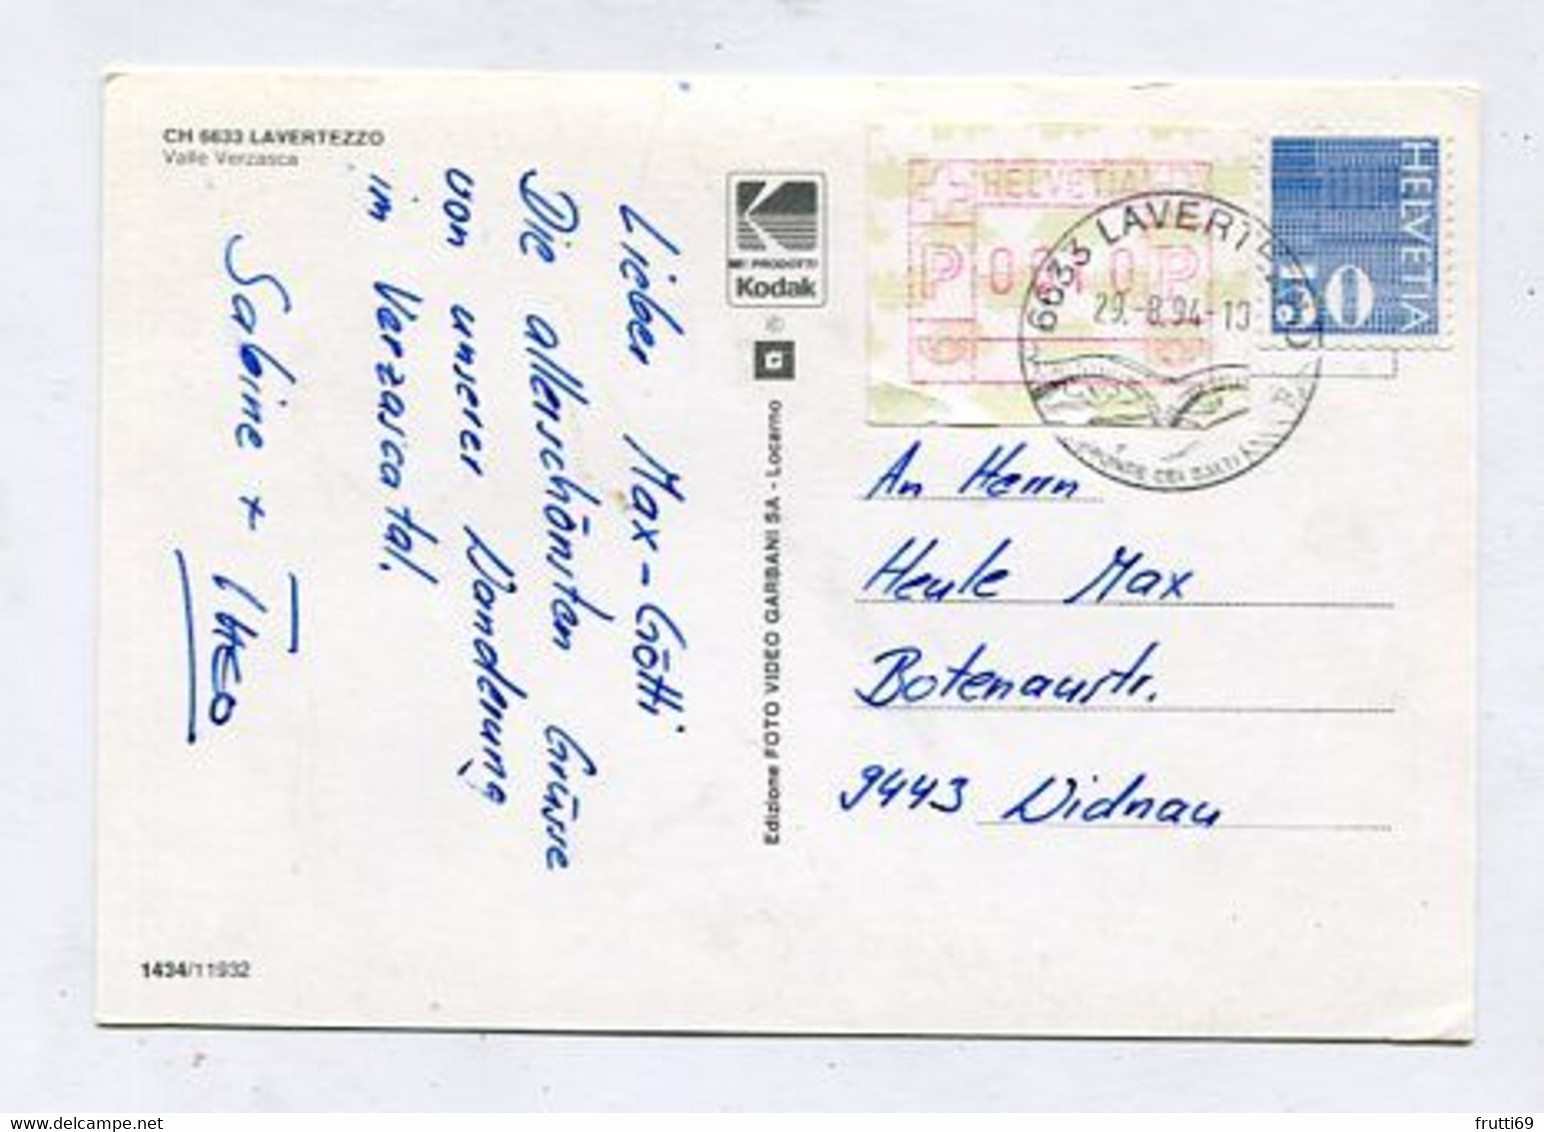 CH 6633 LAVERTEZZO
Valle Verzasca
Lieber Max-Götti
Die allerschönsten Grüsse
von unserer Wanderung
im Verzascatal.
Sabine + THEO
1434/11932
K
NEI PRODOTTI
Kodak
©
G
Edizione FOTO VIDEO GARBANI SA - Locarno
HELVETIA
P P
6633 LAVERTEZZO
29.-8.94-10
PONTE DEI SALTI
HELVETIA
50
An Herrn
Heule Max
Botenaustr.
9443 Widnau
frutti69